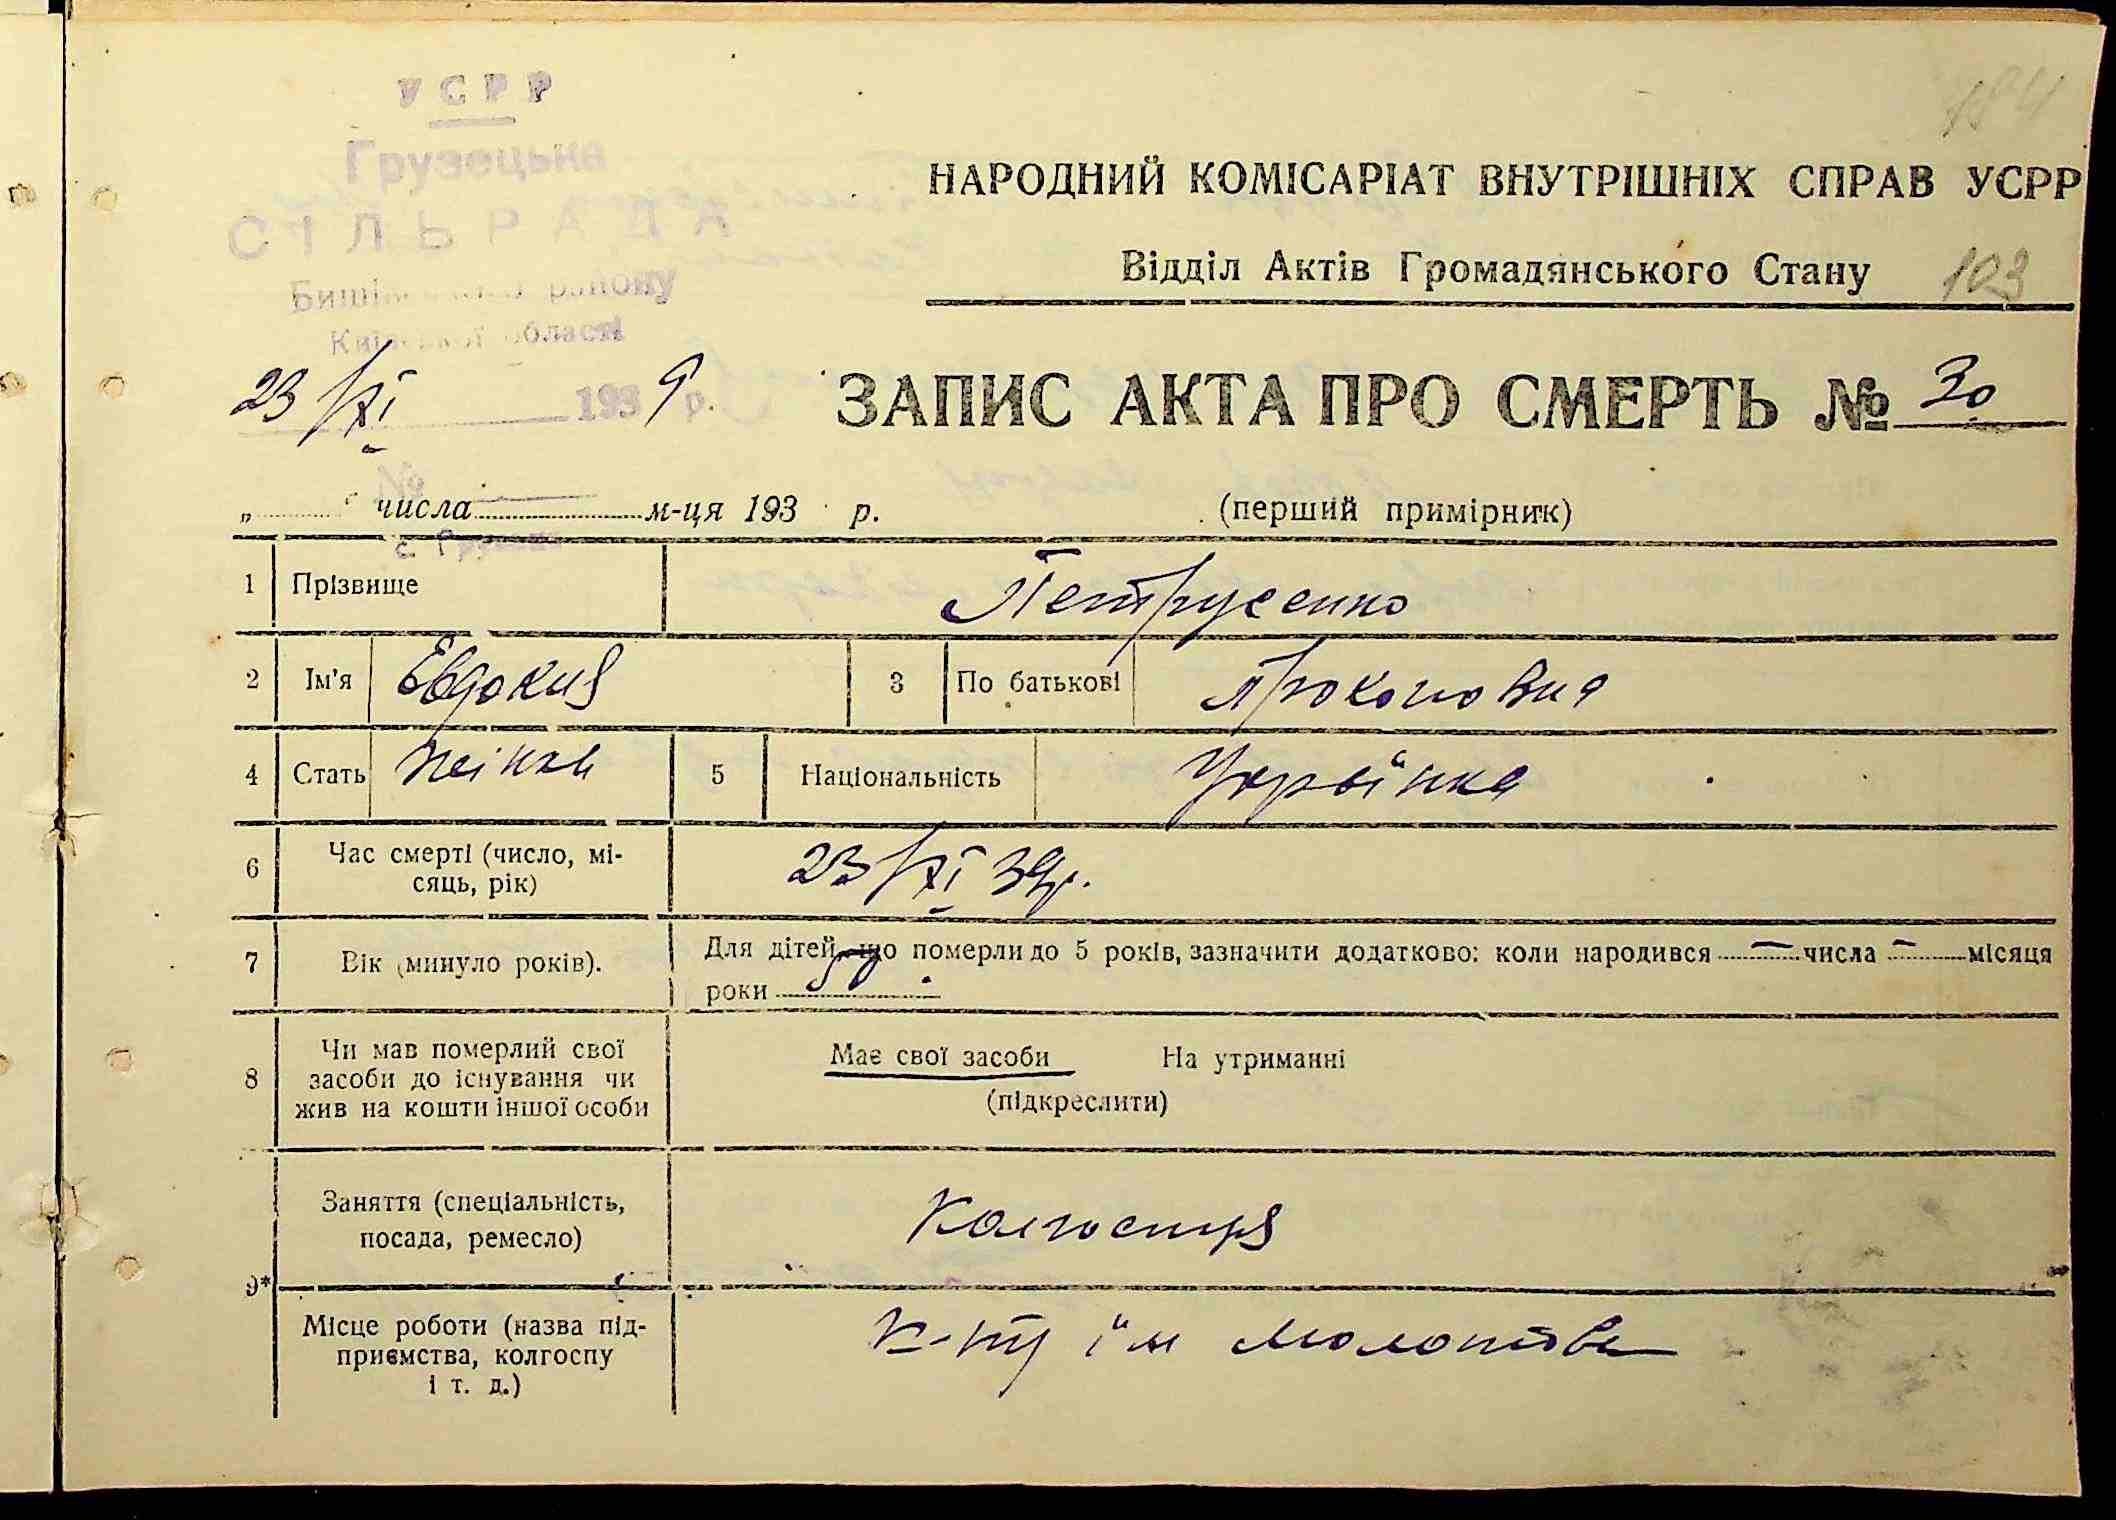 УСРР
Грузецька
СІЛЬРАДА
району
Київської області
23/XI 1939 р.
№
с. Грузьке
184
НАРОДНИЙ КОМІСАРІАТ ВНУТРІШНІХ СПРАВ УСРР
Відділ Актів Громадянського Стану 103
ЗАПИС АКТА ПРО СМЕРТЬ № 30
„ “ числа м-ця 193 р. (перший примірник)
1 Прізвище Петрусенко
2 Ім'я Евдокия 3 По батькові Прокоповна
4 Стать жінка 5 Національність Украінка
6 Час смерті (число, мі-
сяць, рік) 23/XI 39р.
7 Вік (минуло років). Для дітей, що померли до 5 років, зазначити додатково: коли народився — числа — місяця
роки
8 Чи мав померлий свої
засоби до існування чи
жив на кошти іншої особи
Має свої засоби На утриманні
(підкреслити)
9* Заняття (спеціальність,
посада, ремесло) Колгоспця
Місце роботи (назва під-
приємства, колгоспу
і т. д.)
К-пу ім Молотова